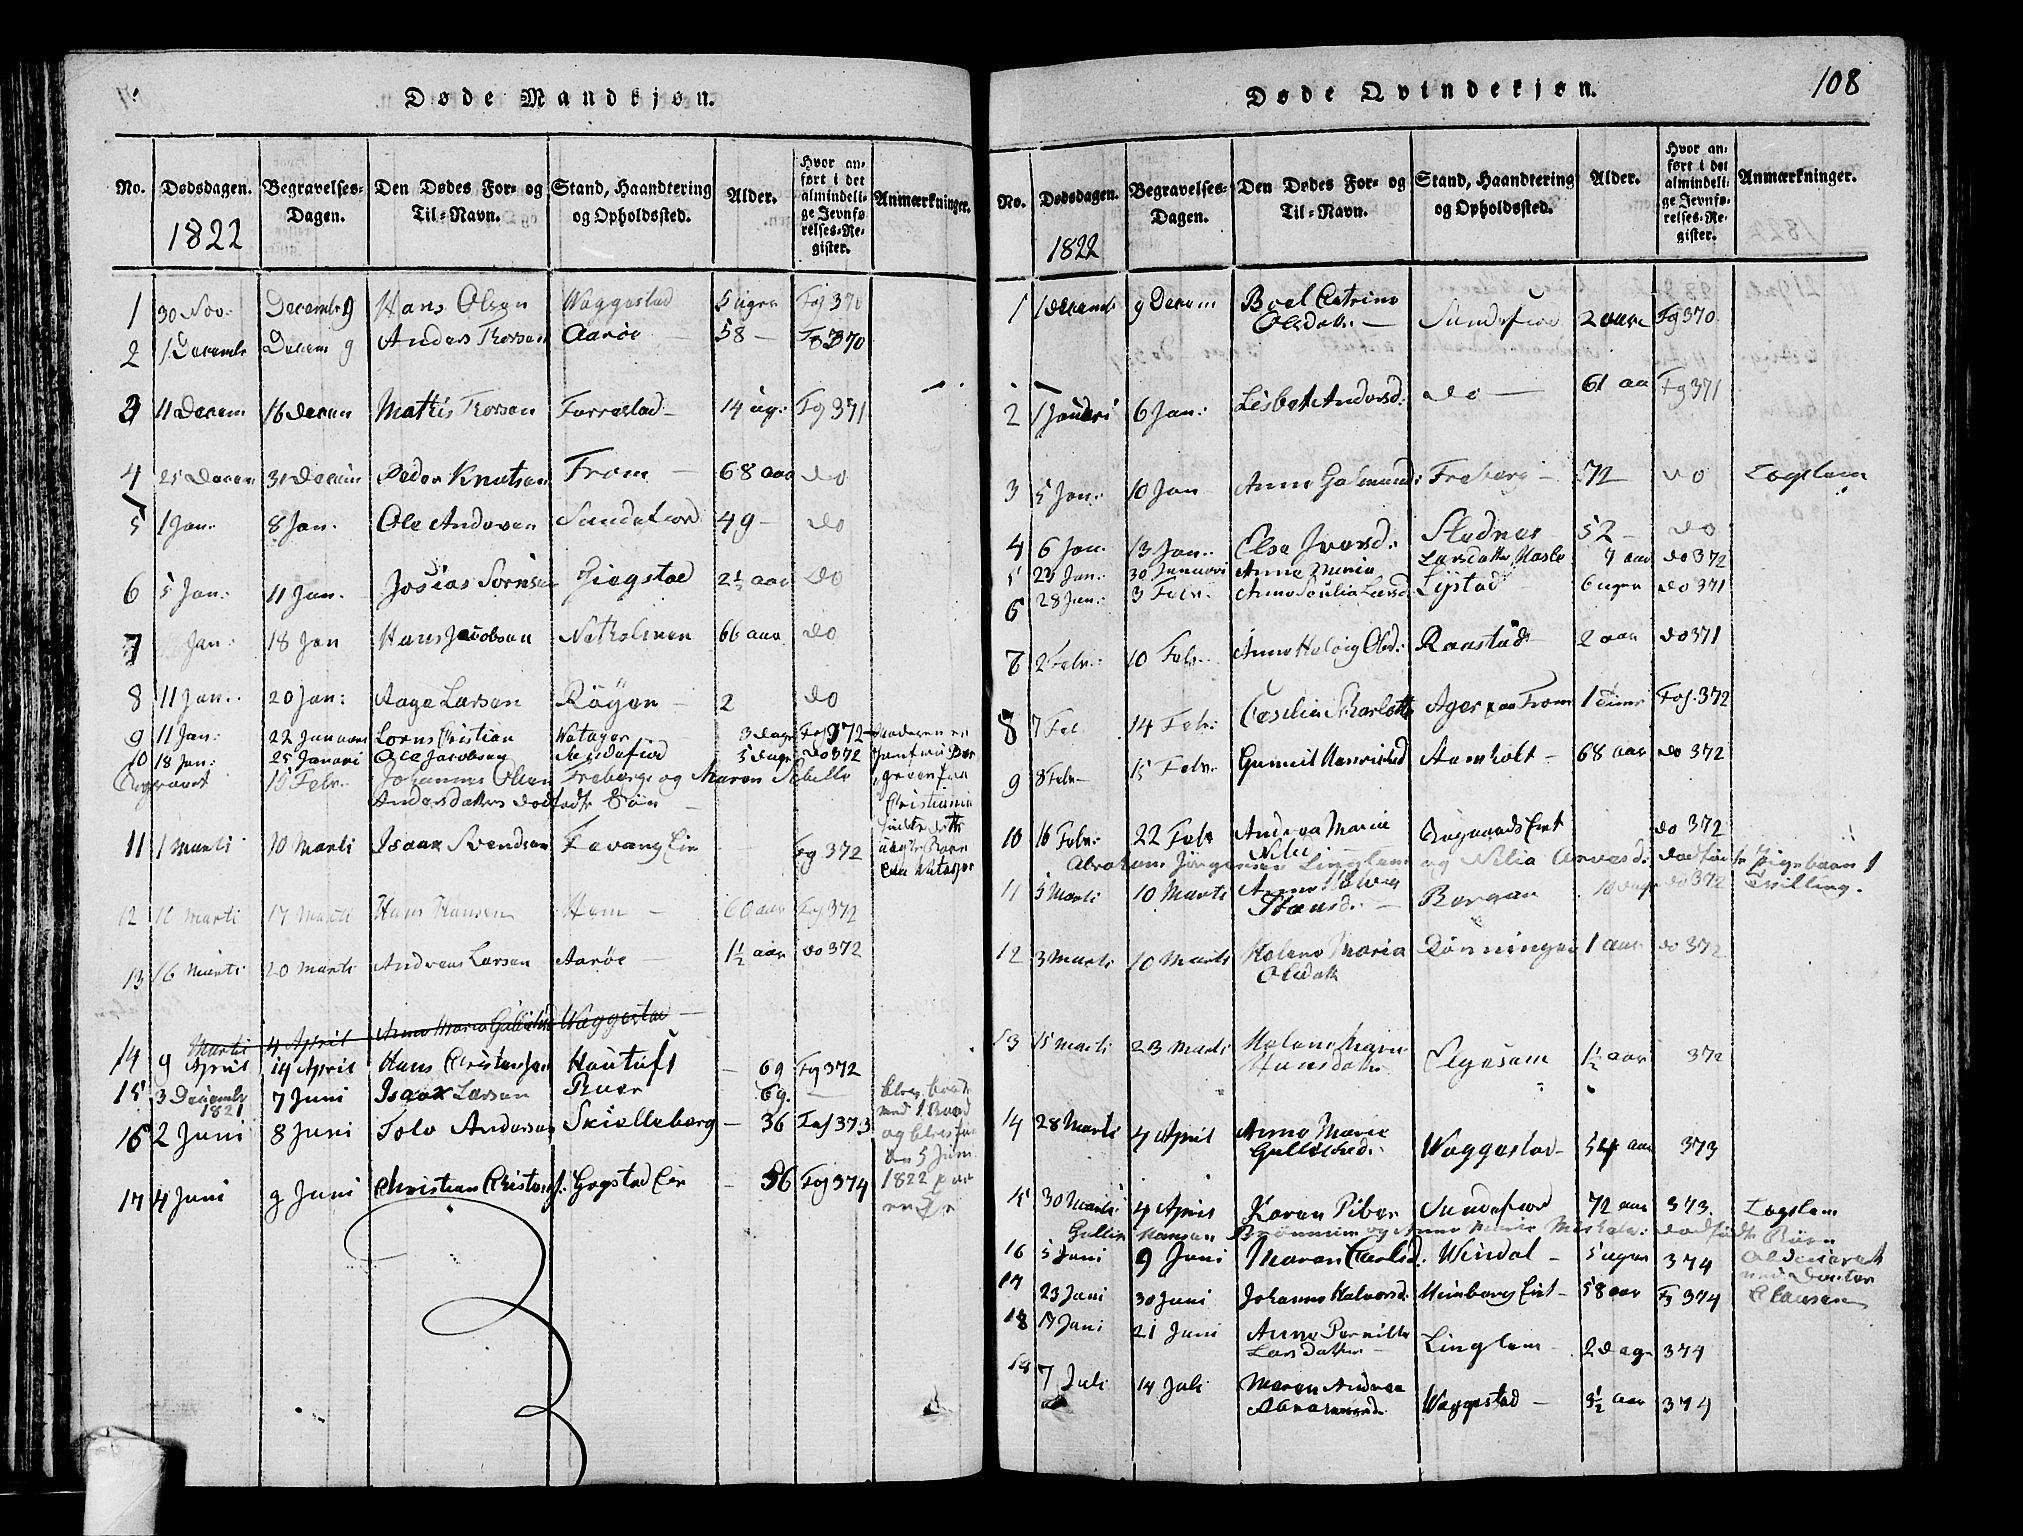 Døde Mandkjøn.
No. Dødsdagen. Begravelses-Dagen. Den Dødes For- og Til-Navn. Stand, Haandtering og Opholdssted. Alder. Hvor anført i det almindelige Jevnførelses-Register. Anmærkninger.
1822
1 30 Nov: Decembr 9 Hans Olsen Waggestad 5 uger Foj 371
2 1 Decembr Decem 9 Anders Thorsen Aarøe 58 — Fo 370
3 11 Decem 16 Decem Mathis Thorsen Forrestad — 14 ug: Fg 371
4 25 Decem 31 Decem Peder Knutsen From — 68 aar do
5 1 Jan: 8 Jan: Ole Andersen Sandefiord 49 — do
6 5 Jan: 11 Jan: Josias Sørnsen Giegstad 2½ aar do
7 Jan: 18 Jan Hans Jacobsen Netholmen 66 aar do
8 11 Jan: 20 Jan: Aage Larsen Røyen — 2 do
9 11 Jan: 22 Januari Lorns Christian Watager 3 dage Foj 372
10 18 Jan: 25 Januari Ole Jacobsen Sandefiord 5 dage Do 372
15 Febr. Johannes Olsen Freberg og Maren Sibille
Andersdatters dødfødte Søn —
11 1 Marti 10 Marti Isaax Svendsen Fevang Eie Fg 372
12 10 Marti 17 Marti Hans Hansen Hem — 60 aar Foj 372
13 16 Marti 20 Marti Andreas Larsen Aarøe — 1½ aar do 372
Marti 4 April Anne Maria Gulliksd Waggestad —
14 9 April 14 April Hans Christensen Hautuft — 69 Fg 372
15 3 Decembr 1821 7 Juni Isaax Larsen Ruer 69. —
16 2 Juni 8 Juni Tolv Andersen Skielleberg — 36 Foj 373
17 4 Juni 9 Juni Christian Christens: Gogstad Eie — 56 Foj 374
og blev
den 5 Juni
1822 paa
en Øe
Døde Qvindekjøn.
108
No. Dødsdagen. Begravelses-Dagen. Den Dødes For- og Til-Navn. Stand, Haandtering og Opholdssted. Alder. Hvor anført i det almindelige Jevnførelses-Register. Anmærkninger.
1822
1 1 Decemb 9 Decem Boel Catrine
Olsdatt: — Sandefiord 2 aar Fg 370
2 1 Januari 6 Jan: Lisbet Andersd: do — 61 aa Fg 371
3 5 Jan: 10 Jan Anne Gulmund: Freberg — 72 do Logslem
4 6 Jan: 13 Jan: Else Iversd: Stednes 52 — do
5 23 Jan: 30 Januari Anne Maria Larsdatter Hasle 4 aar do 372
6 28 Jan: 3 Febr: Anne Larsd Lystad 6 uger do 371
2 Febr: 10 Febr. Anne Helvig Olsd: Raastad 2 aar do 371
8 7 Feb 14 Febr: Cesilia Sharlotte Ager paa From 1 Time Foj. 372
9 8 Febr — 15 Febr. Gunnil Hanrisd Aamholt — 68 aar do 372
10 16 Febr: 22 Febr Andrea Maria
Nils: Bugaards Eiet do 372
Abraham Jørgensen Linglem og Nilia dødfødte Pigebarn 1
Tvilling.
11 5 Marti 10 Marti Anne
Hansd: — Bergan do 372
12 3 Marti 10 Marti Helene Maria
Olsdatt Rønningen 1 aar do 372
13 15 Marti 23 Marti Helene Marie
Hansdatter Elgesem 1½ aar 372
14 28 Marti 4 April Anne Marie
Gulliksd: Waggestad — 54 aar 373
15 30 Marti 4 April Karen Piber Sandefiord 72 aar 373. Logslem
Gullik Hansen og Anne Marie dødfødte Barn
16 5 Juni 9 Juni Maren Carlsd: Windal — 5 uger 374
17 23 Juni 30 Juni Johanne Halvorsd: Himberg Eiet — 58 aar Fg 374
18 17 Juni 21 Juni Anne Pernille
Larsdatter — Linglem — 2 dage 374
19 7 Juli 14 Juli Maren Andrea
Abrahamsd: Waggestad — 3½ aar 374